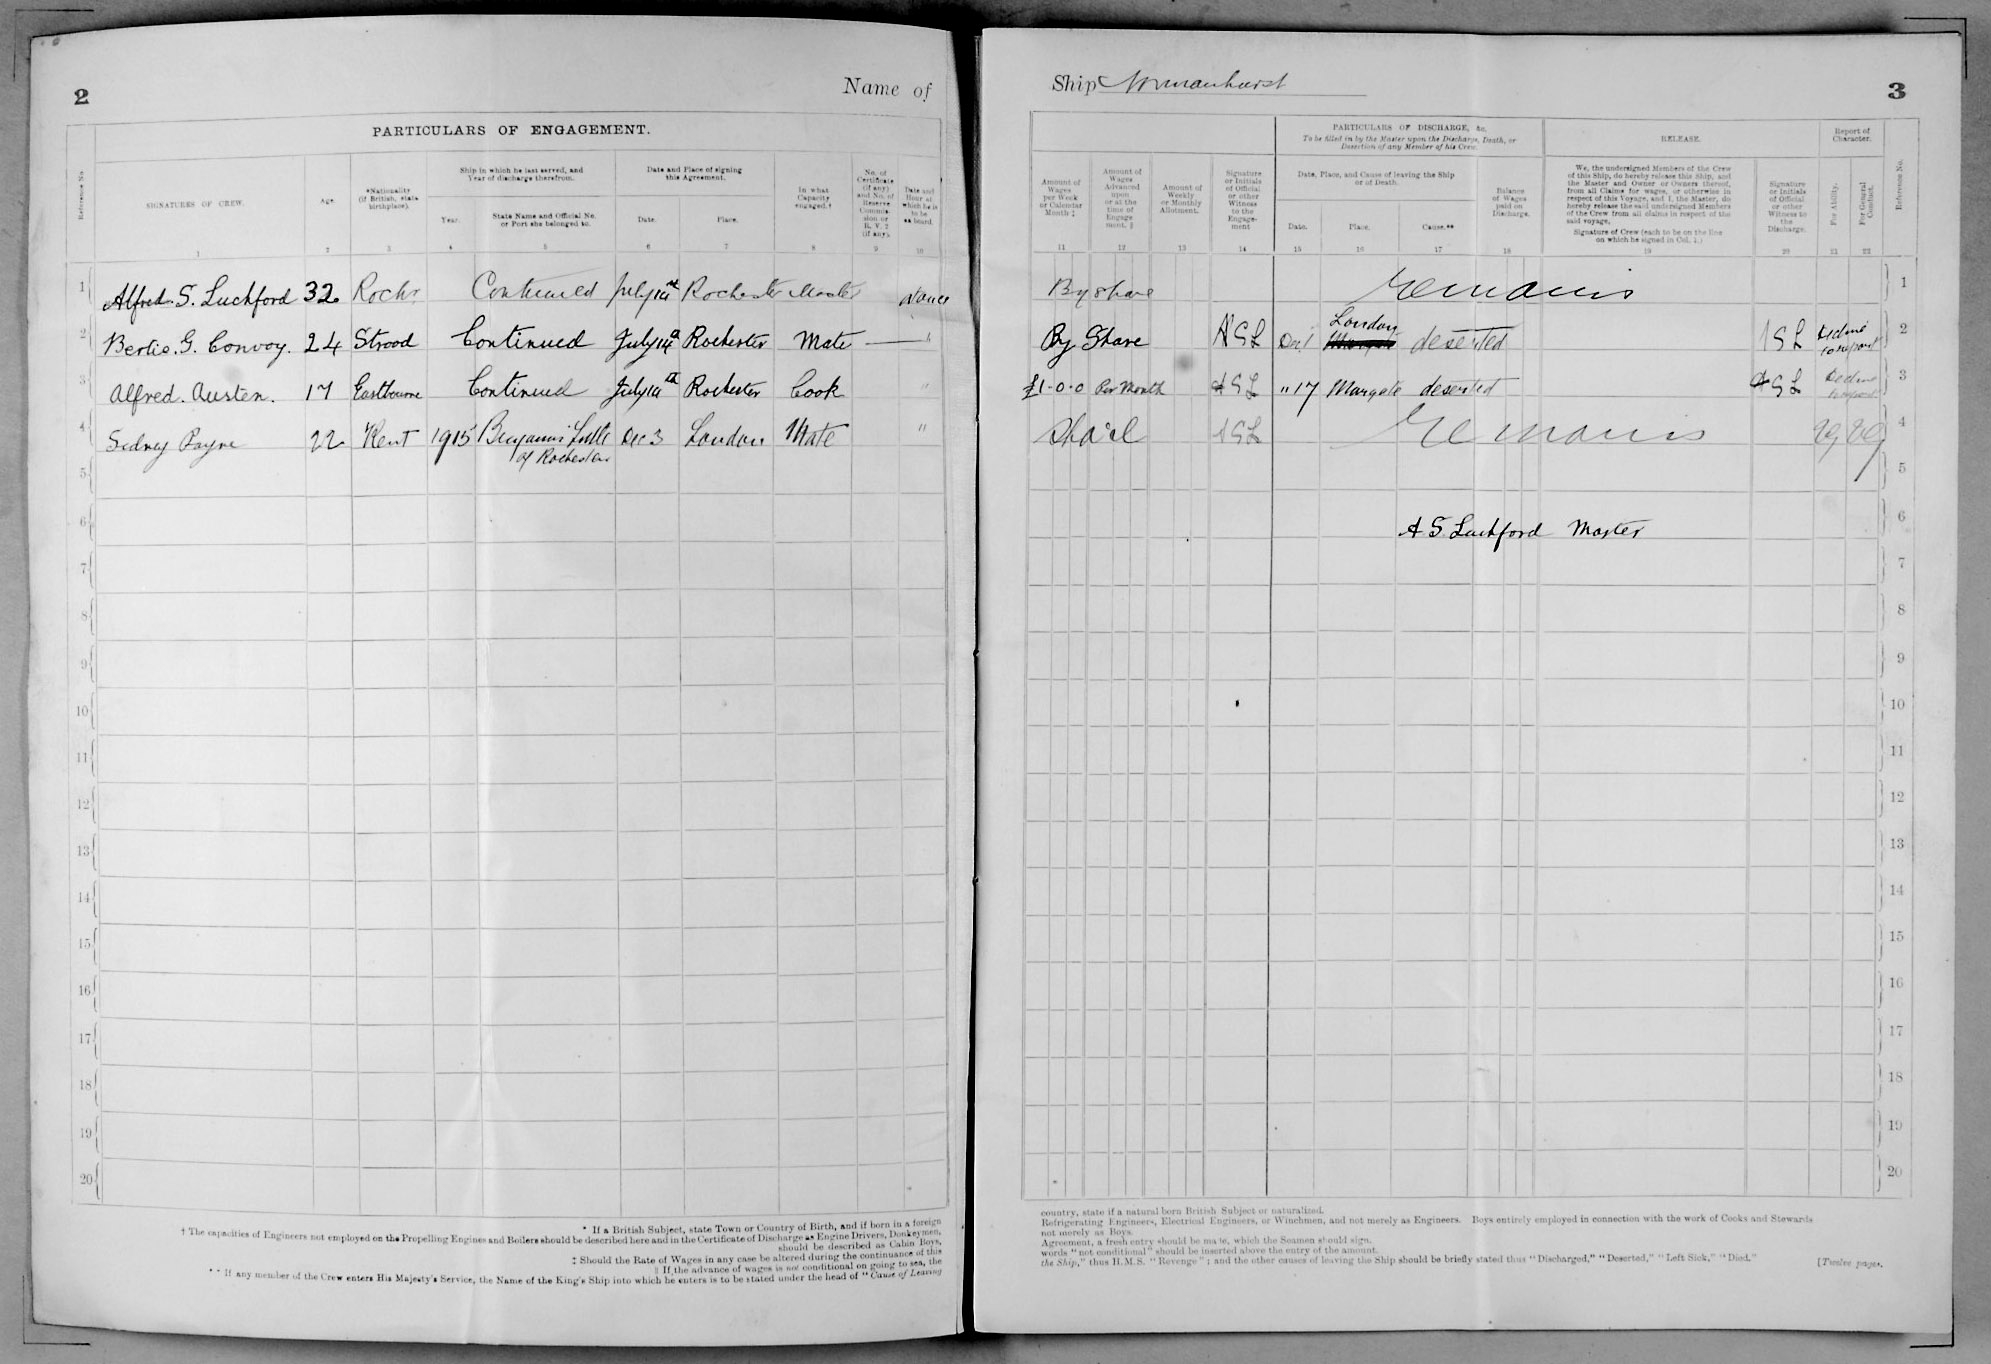 2
Name of
PARTICULARS OF ENGAGEMENT.
Reference No.
SIGNATURES OF CREW.
Age.
*Nationality
(if British, state
birthplace).
Ship in which he last served, and
Year of discharge therefrom.
Year.
State Name and Official No.
or Port she belonged to.
Date and Place of signing
this Agreement.
Date.
Place.
In what
Capacity
engaged.†
No. of
Certificate
(if any)
and No. of
Reserve
Commis-
sion or
R. V. 2
(if any).
Date and
Hour at
which he is
to be
on board.
1 2 3 4 5 6 7 8 9 10
1 Alfred. S. Luckford 32 Rochr Continued July 14th Rochester Master at once
2 Bertie. G. Convoy. 24 Strood Continued July 14th Rochester Mate — "
3 Alfred. Austen. 17 Eastbourne Continued July 14th Rochester Cook "
4 Sidney Payne 22 Kent 1915 Benjamin Little Dec 3 London Mate "
of Rochester
5
6
7
8
9
10
11
12
13
14
15
16
17
18
19
20
* If a British Subject, state Town or Country of Birth, and if born in a foreign
† The capacities of Engineers not employed on the Propelling Engines and Boilers should be described here and in the Certificate of Discharge as Engine Drivers, Donkeymen,
should be described as Cabin Boys,
‡ Should the Rate of Wages in any case be altered during the continuance of this
|| If the advance of wages is not conditional on going to sea, the
** If any member of the Crew enters His Majesty's Service, the Name of the King's Ship into which he enters is to be stated under the head of "Cause of Leaving
Ship Normanhurst
3
Amount of
Wages
per Week
or Calendar
Month ‡
Amount of
Wages
Advanced
upon
or at the
time of
Engage
ment. ‖
Amount of
Weekly
or Monthly
Allotment.
Signature
or Initials
of Official
or other
Witness
to the
Engage-
ment
PARTICULARS OF DISCHARGE, &c.
To be filled in by the Master upon the Discharge, Death, or
Desertion of any Member of his Crew.
Date, Place, and Cause of leaving the Ship
or of Death.
Date.
Place.
Cause.**
Balance
of Wages
paid on
Discharge.
RELEASE.
We, the undersigned Members of the Crew
of this Ship, do hereby release this Ship, and
the Master and Owner or Owners thereof,
from all Claims for wages, or otherwise in
respect of this Voyage, and I, the Master, do
hereby release the said undersigned Members
of the Crew from all claims in respect of the
said voyage.
Signature of Crew (each to be on the line
on which he signed in Col. 1.)
Signature
or Initials
of Official
or other
Witness to
the
Discharge.
Report of
Character.
For Ability.
For General
Conduct.
Reference No.
11 12 13 14 15 16 17 18 19 20 21 22
By Share Remains 1
London
By Share A S L Dec 1 deserted A S L decline to report 2
£1-0-0 Per Month A S L "17 Margate deserted A S L Decline to report 3
Share A S L Remains VG VG 4
5
6
A S Luckford Master
7
8
9
10
11
12
13
14
15
16
17
18
19
20
country, state if a natural born British Subject or naturalized.
Refrigerating Engineers, Electrical Engineers, or Winchmen, and not merely as Engineers. Boys entirely employed in connection with the work of Cooks and Stewards
not merely as Boys.
Agreement, a fresh entry should be made, which the Seamen should sign.
words "not conditional" should be inserted above the entry of the amount.
the Ship," thus H.M.S. "Revenge"; and the other causes of leaving the Ship should be briefly stated thus "Discharged," "Deserted," "Left Sick," "Died."
[Twelve pages.